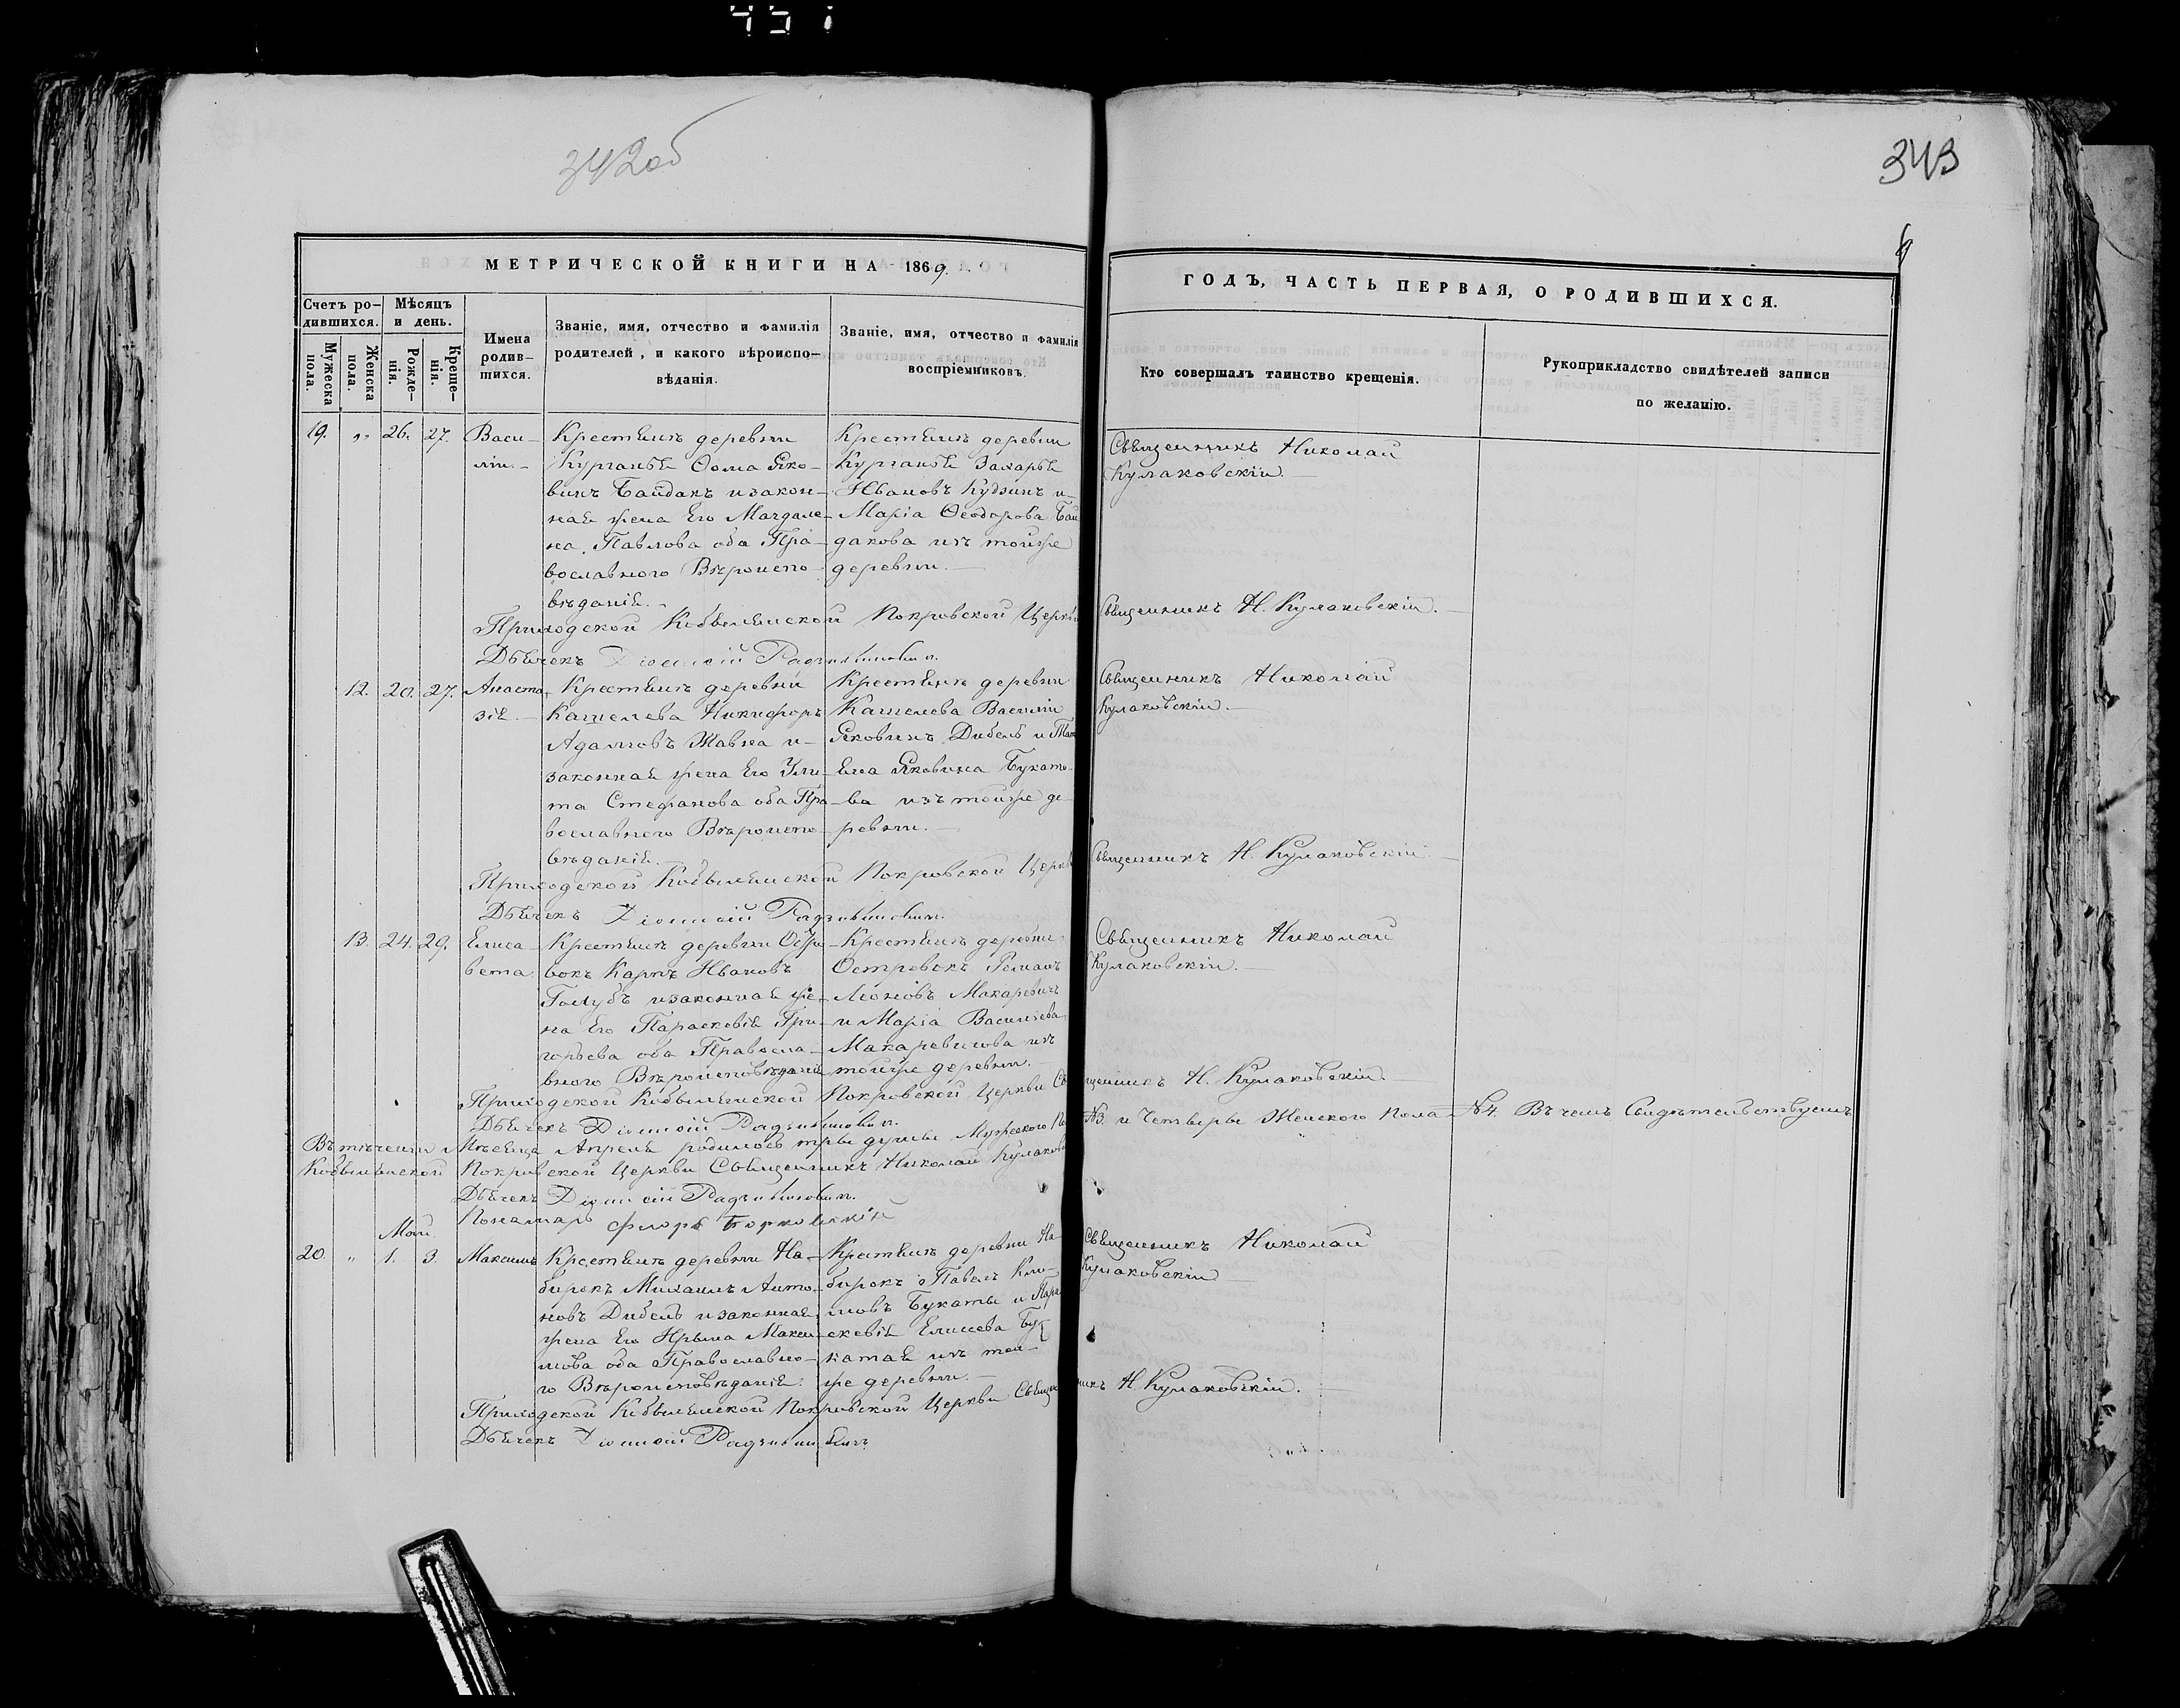 451
342об
343
МЕТРИЧЕСКОЙ КНИГИ НА 1869.
ГОДЪ, ЧАСТЬ ПЕРВАЯ, О РОДИВШИХСЯ.
Счетъ ро-
дившихся.
Мѣсяцъ
и день.
Мужеска
пола.
Женска
пола.
Рожде-
нія.
Креще-
нія.
Имена
родив-
шихся.
Званіе, имя, отчество и фамилія
родителей, и какого вѣроиспо-
вѣданія.
Званіе, имя, отчество и фамилія
воспріемниковъ.
Кто совершалъ таинство крещенія.
Рукоприкладство свидѣтелей записи
по желанію.
19. „ 26. 27.
Васи-
лій.
Крестьянъ деревни
Курганья Ѳома Яко-
винъ Байдакъ и закон-
ная жена Его Магдале-
на Павлова оба Пра-
вославного Вѣроиспо-
вѣданія.
Крестьянъ деревни
Курганья Захарья
Ивановъ Кудзинъ и
Марія Ѳеодорова Бай
дакова изъ тойже
деревни.
Священникъ Николай
Кулаковскій.
Приходской Кобылянской Покровской Церкви Священникъ Н. Кулаковскій.
Дьячекъ Діонисій
12. 20. 27.
Анаста-
зія.
Крестьянъ деревни
Кашелева Никифоръ
Адамовъ Жавна и
законная жена Его Ули-
та Стефанова оба Пра-
вославного Вѣроиспо-
вѣданія.
Крестьянъ деревни
Кашелева Василій
Яковинъ Дибель и Тать
яна Яковина Букато-
ва изъ тойже де-
ревни.
Священникъ Николай
Кулаковскій.
Приходской Кобылянской Покровской Церкви Священникъ Н. Кулаковскій.
Дьячекъ Діонисій
13. 24. 29.
Елиса-
вета
Крестьянъ деревни Остро-
вокъ Карпъ Ивановъ
Голубъ и законная же-
на Его Параскевія Гри-
горьева оба Правосла-
вного Вѣроисповѣданія
Крестьянъ деревни
Островокъ Романъ
Леоновъ Макаревичъ
и Марія Василіева
Макаревичова изъ
тойже деревни.
Священникъ Николай
Кулаковскій.
Приходской Кобылянской Покровской Церкви Священникъ Н. Кулаковскій.
Дьячекъ Діонисій
Въ теченіи Мѣсяца Апреля родилось три души Мужеского По № 3. и Четыры Женского Пола № 4. Въ чемъ Свидѣтельствуемъ
Кобылянской Покровской Церкви Священникъ Николай Кулаковс
Дьячекъ Діонисій
Пономарь Флоръ Борковскій
Май.
20. „ 1. 3.
Максимъ
Крестьянъ деревни На-
бирокъ Михаилъ Анто-
новъ Дибель и законная
жена Его Ирына Макси-
мова оба Православно-
го Вѣроисповѣданія.
Крестьянъ деревни На-
бирокъ Павелъ Кли-
мовъ Букаты и Пара
скевія Елисева Бу-
катая изъ той-
же деревни.
Священникъ Николай
Кулаковскій
Приходской Кобылянской Покровской Церкви Священникъ Н. Кулаковскій.
Дьячекъ Діонисій